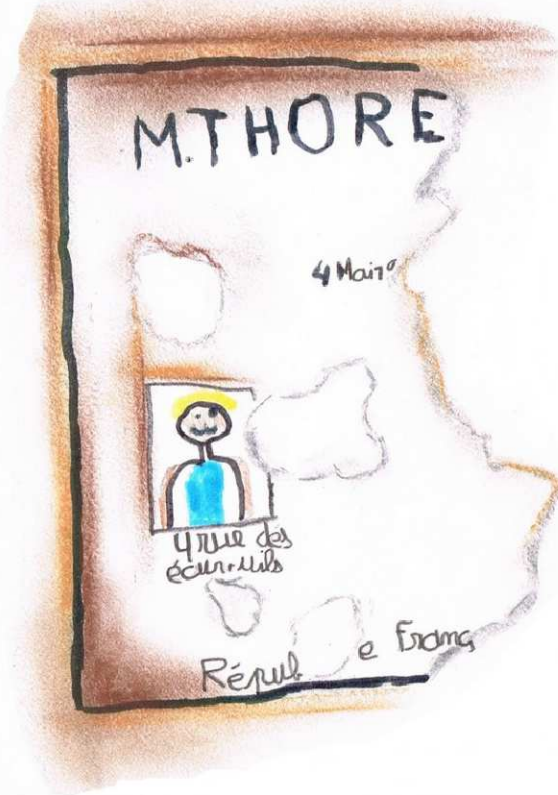 M.THORE
4 Mai 19
4 rue des
écureuils
Répub e Franç